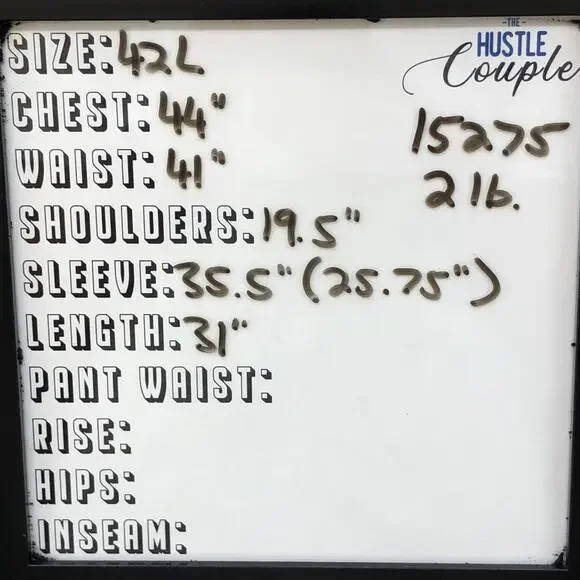 -THE-
HUSTLE
Couple
SIZE: 42L
CHEST: 44"
15275
WAIST: 41"
2 lb.
SHOULDERS: 19.5"
SLEEVE: 35.5" (25.75")
LENGTH: 31"
PANT WAIST:
RISE:
HIPS:
INSEAM: